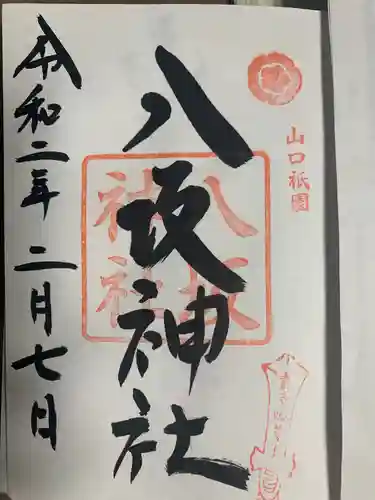 山口祇園
八坂神社
八坂
神社
令和二年二月七日